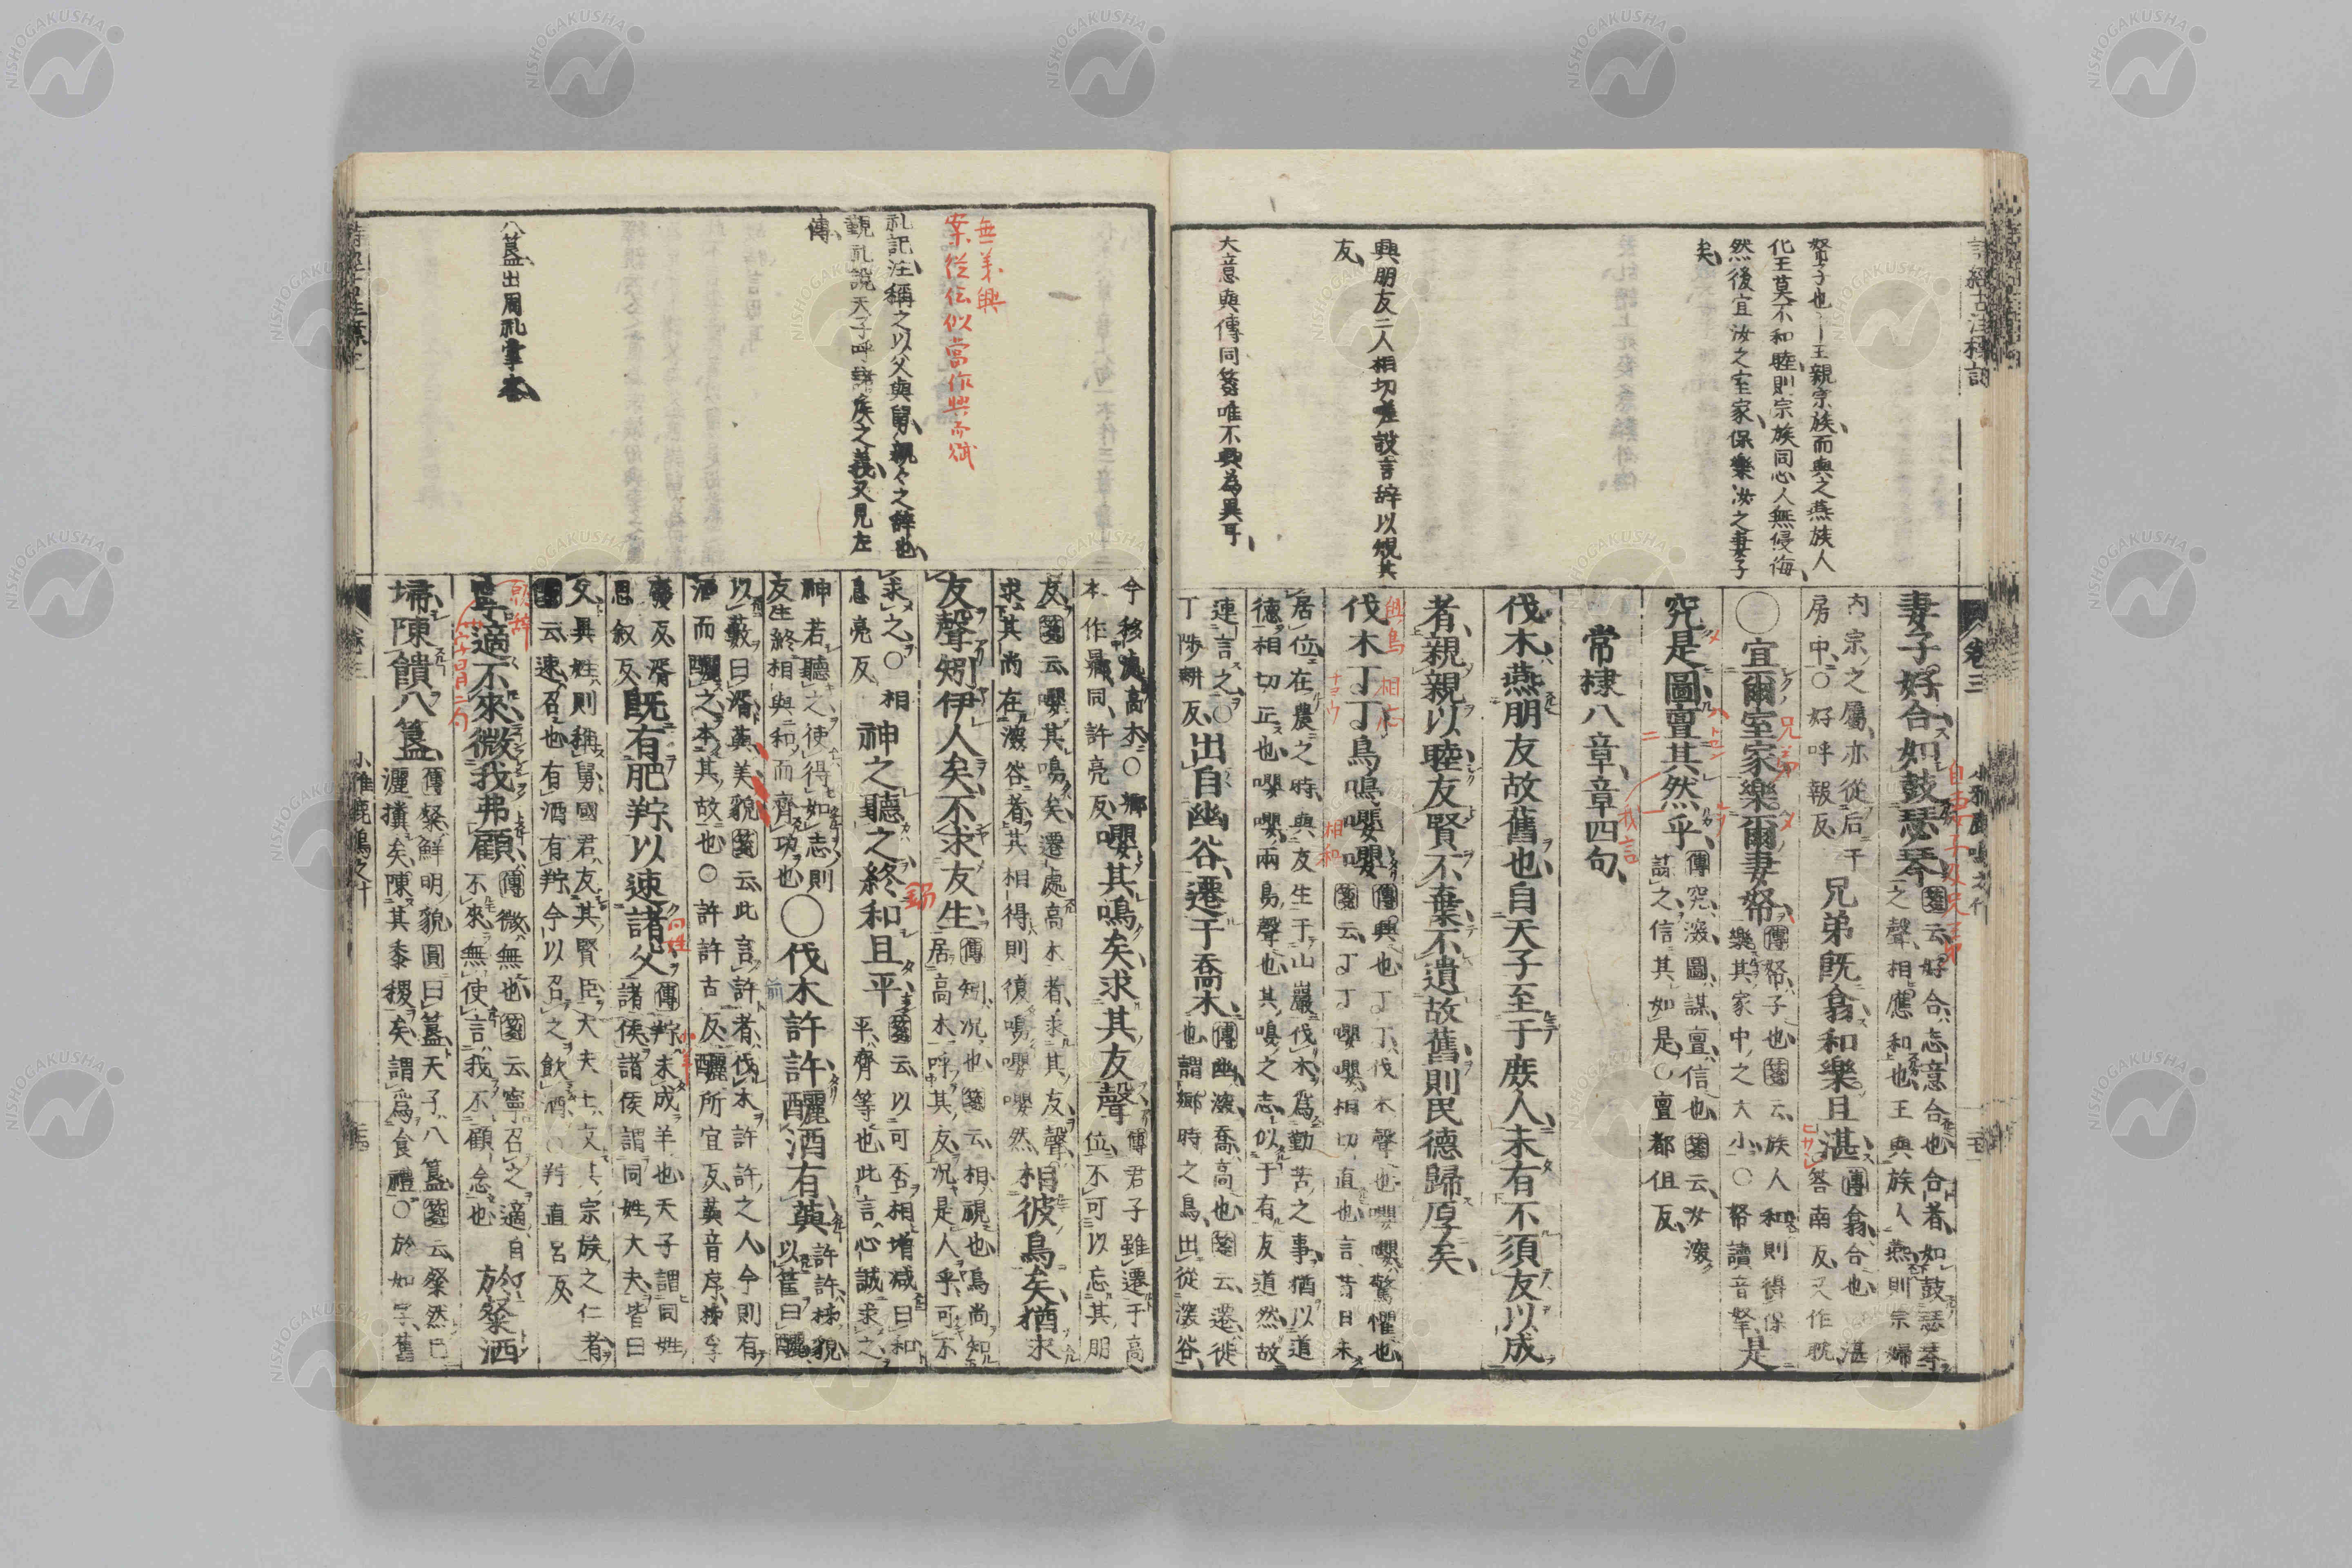 帑子也王親宗族而與之燕族人
化王莫不和睦則宗族同心人無侵侮
然後宜汝之室家保樂汝之妻子
矣
興朋友二人相切嗟設言辞以規其
友
大意與傳同箋唯不興為異耳
卷三
妻子好合如鼓瑟琴
箋云好合志意合也合者如鼓瑟琴
之聲相應和也王與族人燕則宗婦
內宗之屬亦從后于
房中〇好呼報反
兄弟既翕和樂且湛
傳翕合也〇湛
答南反又作耽
〇宜爾室家樂爾妻帑
傳帑子也箋云族人和則得保
樂其家中之大小〇帑讀音孥
是
究是圖亶其然乎
傳究深圖謀亶信也箋云女深
謀之信其如是〇亶都但反
常棣八章章四句
伐木燕朋友故舊也自天子至于庶人未有不須友以成
者親親以睦友賢不棄不遺故舊則民德歸厚矣
伐木丁丁鳥鳴嚶嚶
傳興也丁丁伐木聲也嚶嚶驚懼也
箋云丁丁嚶嚶相切直也言昔日未
居位在農之時與友生于山巖伐木為勤苦之事猶以道
德相切正也嚶嚶兩鳥聲也其鳴之志似于有友道然故
連言之〇
丁陟耕反
出自幽谷遷于喬木
傳幽深喬高也箋云遷徙
也謂鄉時之鳥出從深谷
礼記注稱之以父與舅親々之辞也
覲礼説天子呼諸侯之義又見左
傳
八簋出周礼掌客
無箋興
案従伝似當作興而賦
今移處高木〇鄉
本作曏同許亮反
嚶其鳴矣求其友聲
傳君子雖遷于高
位不可以忘其朋
友箋云嚶其鳴矣遷處高木者求其友聲
求其尚在深谷者其相得則復鳴嚶嚶然
相彼鳥矣猶求
友聲矧伊人矣不求友生
傳矧況也箋云相視也鳥尚知
居高木呼其友況是人乎可不
求之〇相
息亮反
神之聽之終和且平
箋云以可否相增減曰和
平齊等也此言心誠求之
神若聽之使得如志則
友生終相與和而齊功也
〇伐木許許釃酒有藇
許許柹貌
以筐曰釃
以藪曰湑藇美貌箋云此言許者伐木許許之人今則有
酒而釃之本其故也〇許許古反釃所宜反藇音序柹孚
癈反湑
思敘反
既有肥羜以速諸父
傳羜未成羊也天子謂同姓
諸侯諸侯謂同姓大夫皆曰
父異姓則稱舅國君友其賢臣大夫士友其宗族之仁者
箋云速召也有酒有羜今以召之飲酒〇羜直呂反
寧適不來微我弗顧
傳微無也箋云寧召之適自
不來無使言我不顧念也
於粲洒
埽陳饋八簋
傳粲鮮明貌圓曰簋天子八簋箋云粲然已
灑㩲矣陳其黍稷矣謂為食禮〇於如字舊